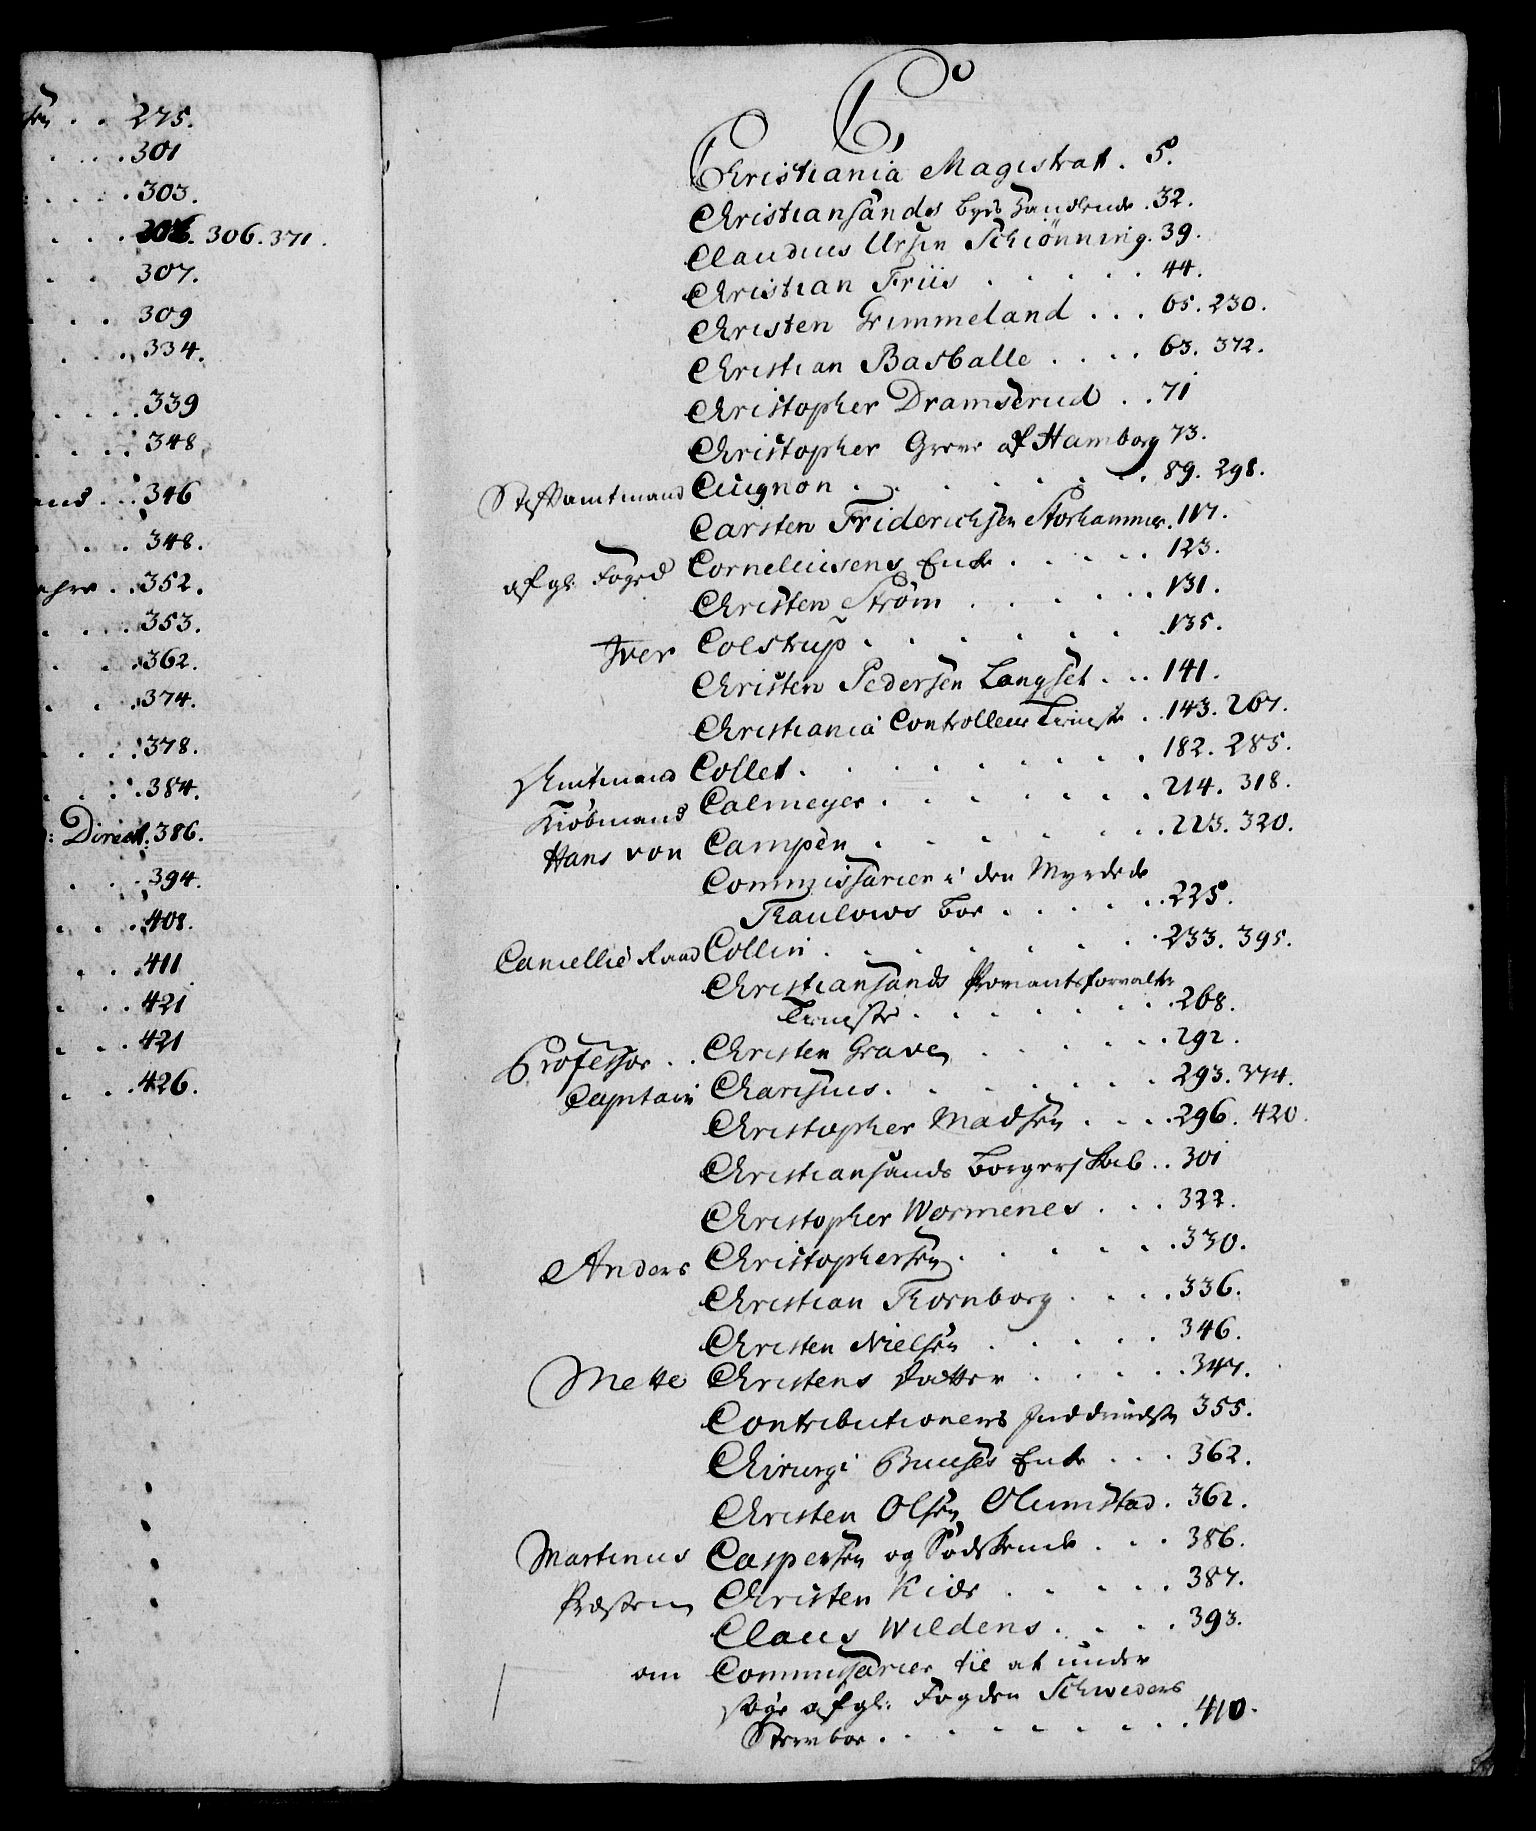 275.
301
303.
306. 371.
307.
309
334.
339
348
346
348.
352.
353.
362.
374.
378.
384.
Direct. 386.
394.
408.
411
421
421
426.
C.
Christiania Magistrat. 5.
Christiansands byes Handlende. 32.
Claudius Ursin Schiönning. 39.
Christian Friis . . . . . 44.
Christen Grimmeland . . . 65. 230.
Christian Basballe . . . . 63. 372.
Christopher Dramserud . . 71
Christopher Greve af Hamborg 73.
Stiftamtmand Cicignon . . . . . . . 89. 298.
Carsten Friderichsen Storhammer. 117.
afgl: Foged Corneliusens Enke . . . . . 123.
Christen Strøm . . . . . . 131.
Iver Colstrup . . . . . . . 135.
Christen Pedersen Langset . . . 141.
Christiania Controlleur Tieniste . . 143. 267.
Amtmand Collet . . . . . . . . 182. 285.
Kiöbmand Calmeyer . . . . . . . 214. 318.
Hans von Campen . . . . . . . 223. 320.
Commissarier i den Myrdede
Thaulows boe . . . . . . 225.
Cancellie Raad Collin . . . . . . . . 233. 395.
Christiansands Proviantsforvalter
Tieniste . . . . . . . . 268.
Professor . . Christen Grave . . . . . . 292.
Captain Charisius . . . . . . . 293. 374.
Christopher Madsen . . . . 296. 420.
Christiansands Borgerskab . . 301
Christopher Wormenes . . . 322.
Anders Christophersen . . . . . . 330.
Christian Thornborg . . . . 336.
Christen Nielsen . . . . . 346.
Mette Christens Datter . . . . . 347.
Contributioners Inddrivelse 355.
Chirurgi Buuses Enke . . . 362.
Christen Olsen Olumstad . 362.
Martinus Caspersen og Södskende . . . 386.
Præsten Christen Kide . . . . . 387.
Claus Wildens . . . . 393.
om Commissarier til at under
søge afgl: Fogden Schweders
Stervboe . . . . . . . . 410.